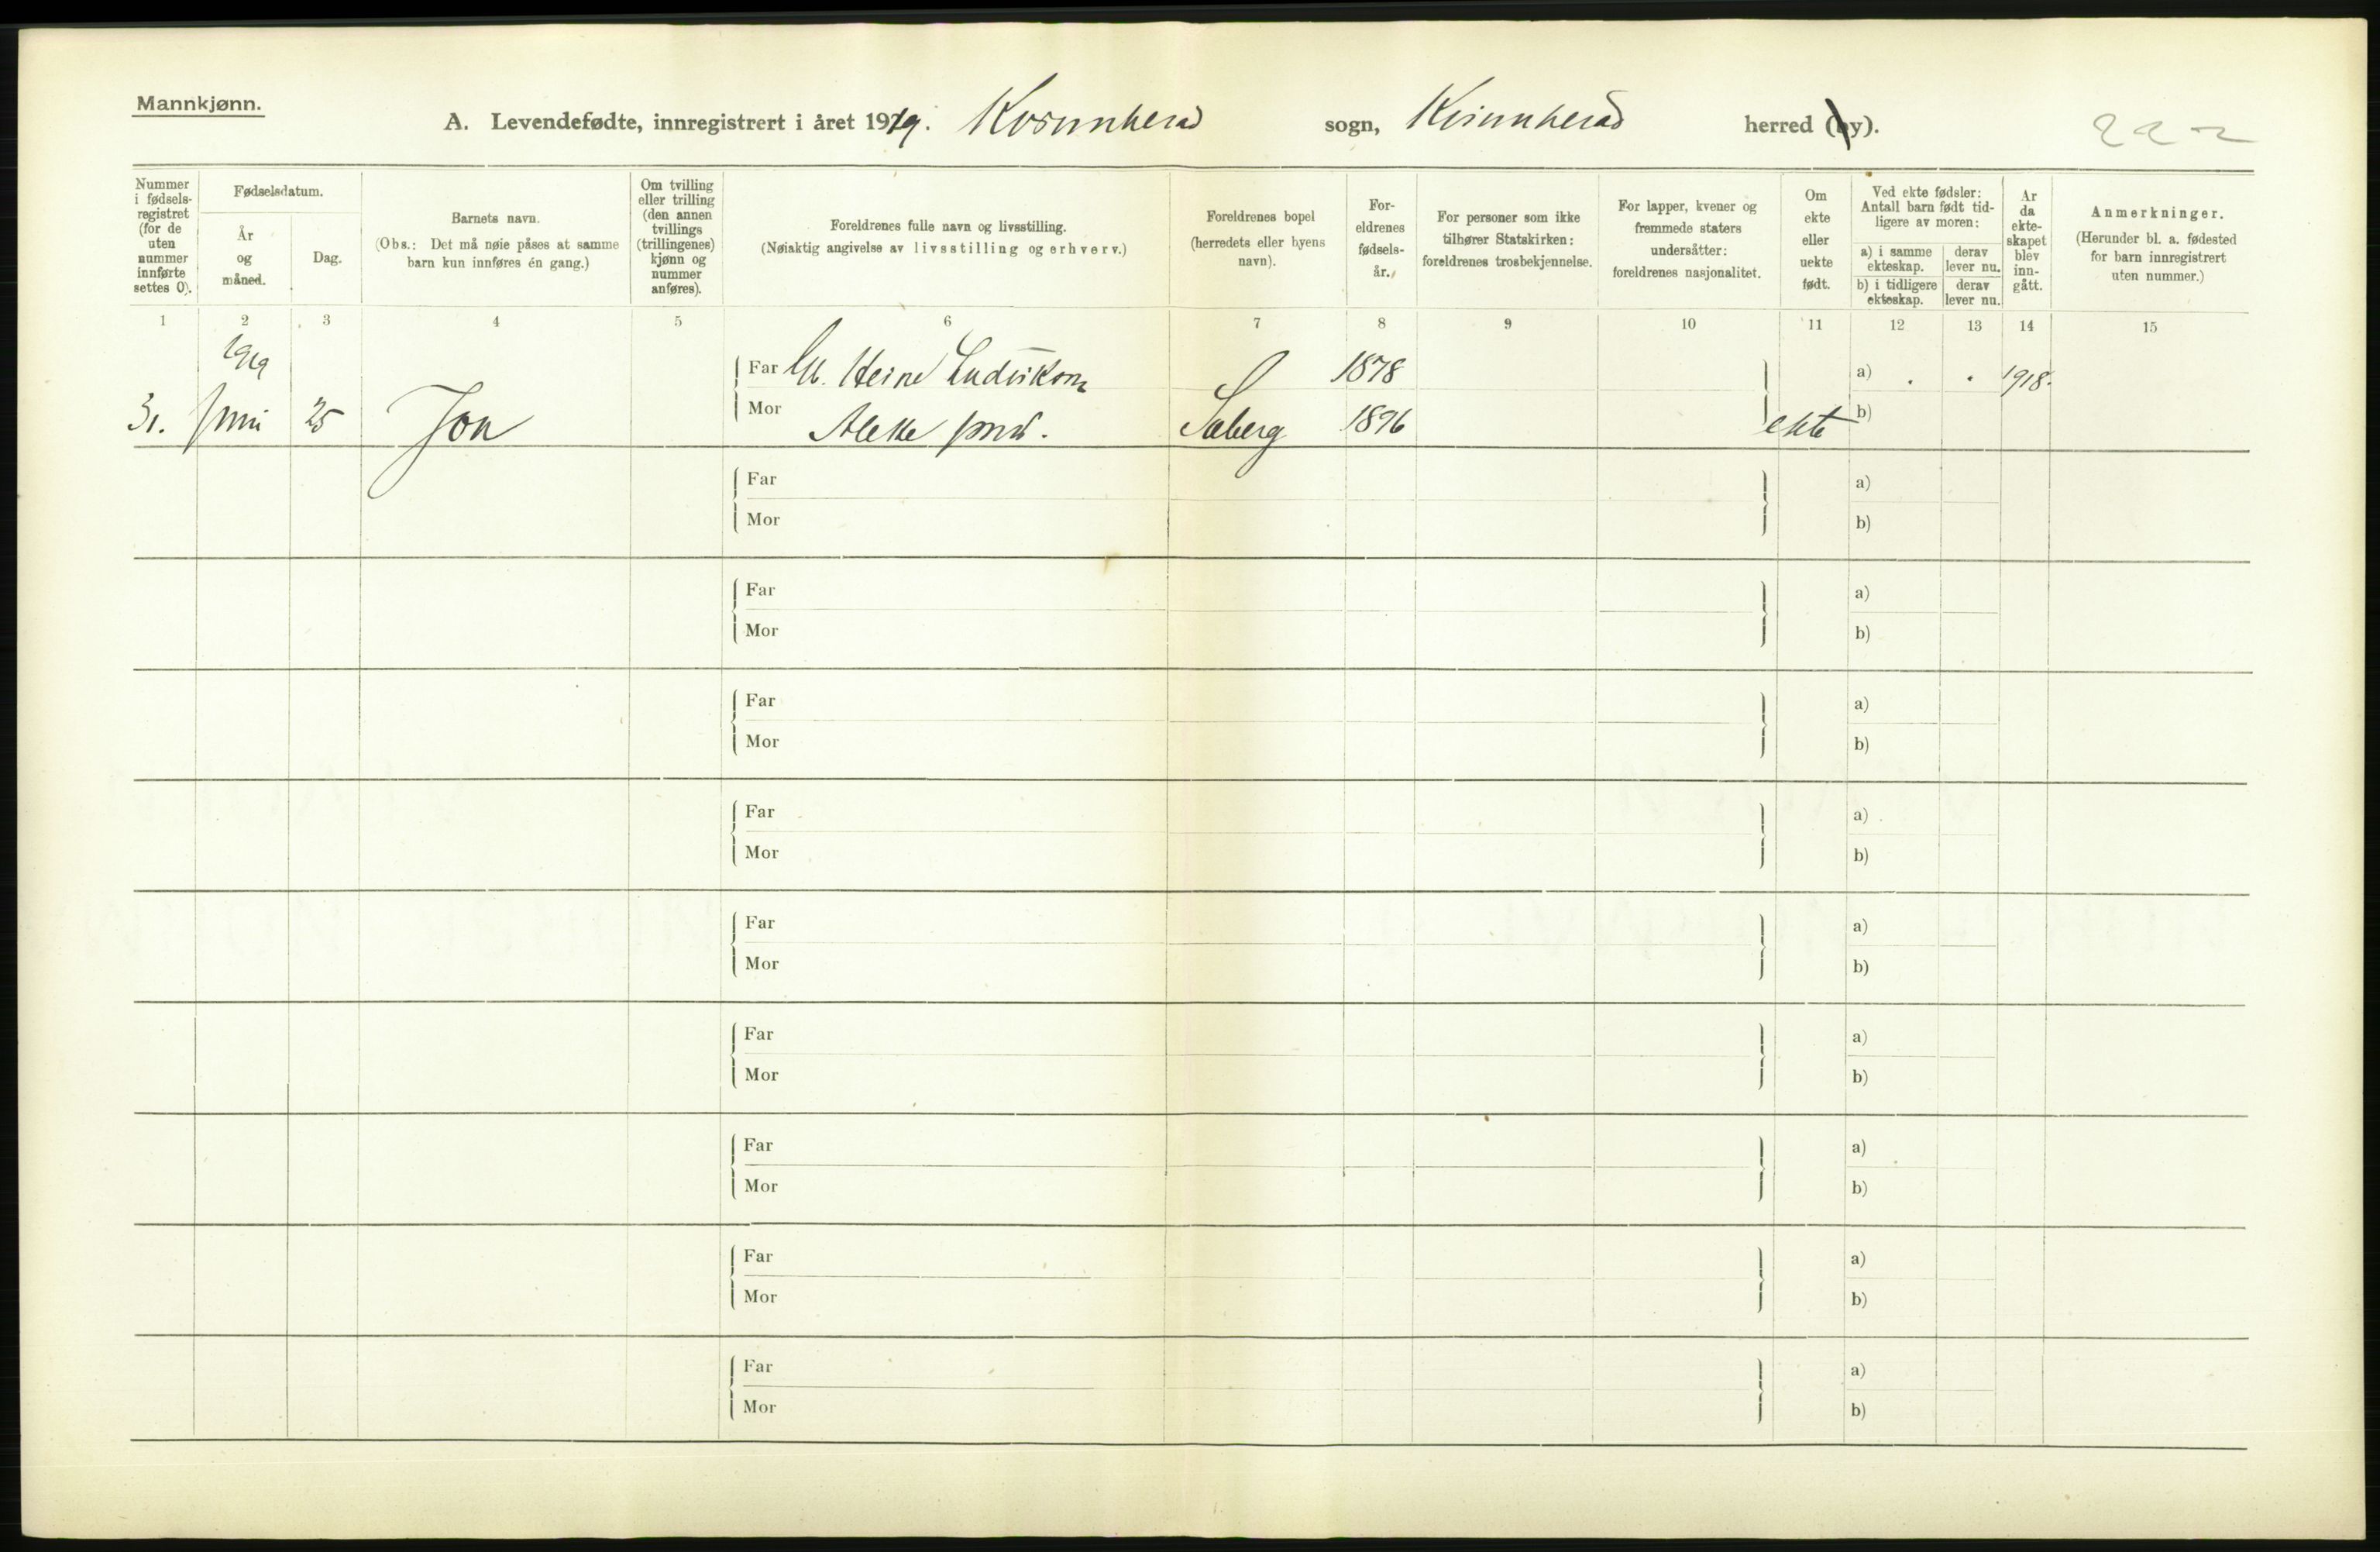 Mannkjønn.
A. Levendefødte, innregistrert i året 1919. Kvinnherad sogn, Kvinnherad herred (by).
Nummer i fødsels-registret (for de uten nummer innførte settes 0).
Fødselsdatum.
År og måned.
Dag.
Barnets navn.
(Obs.: Det må nøie påses at samme barn kun innføres én gang.)
Om tvilling eller trilling (den annen tvillings (trillingenes) kjønn og nummer anføres).
Foreldrenes fulle navn og livsstilling.
(Nøiaktig angivelse av livsstilling og erhverv.)
Foreldrenes bopel (herredets eller byens navn).
For-eldrenes fødsels-år.
For personer som ikke tilhører Statskirken: foreldrenes trosbekjennelse.
For lapper, kvener og fremmede staters undersåtter: foreldrenes nasjonalitet.
Om ekte eller uekte født.
Ved ekte fødsler: Antall barn født tid-ligere av moren:
a) i samme ekteskap.
derav lever nu.
b) i tidligere ekteskap.
derav lever nu.
År da ekte-skapet blev inn-gått.
Anmerkninger.
(Herunder bl. a. fødested for barn innregistrert uten nummer.)
1 2 3 4 5 6 7 8 9 10 11 12 13 14 15
1919
Far Heine 1878 a) . . 1918.
31. Juni 25 Jon Mor Sæberg 1896 ekte b)
Far a)
Mor b)
Far a)
Mor b)
Far a)
Mor b)
Far a)
Mor b)
Far a)
Mor b)
Far a)
Mor b)
Far a)
Mor b)
Far a)
Mor b)
Far a)
Mor b)